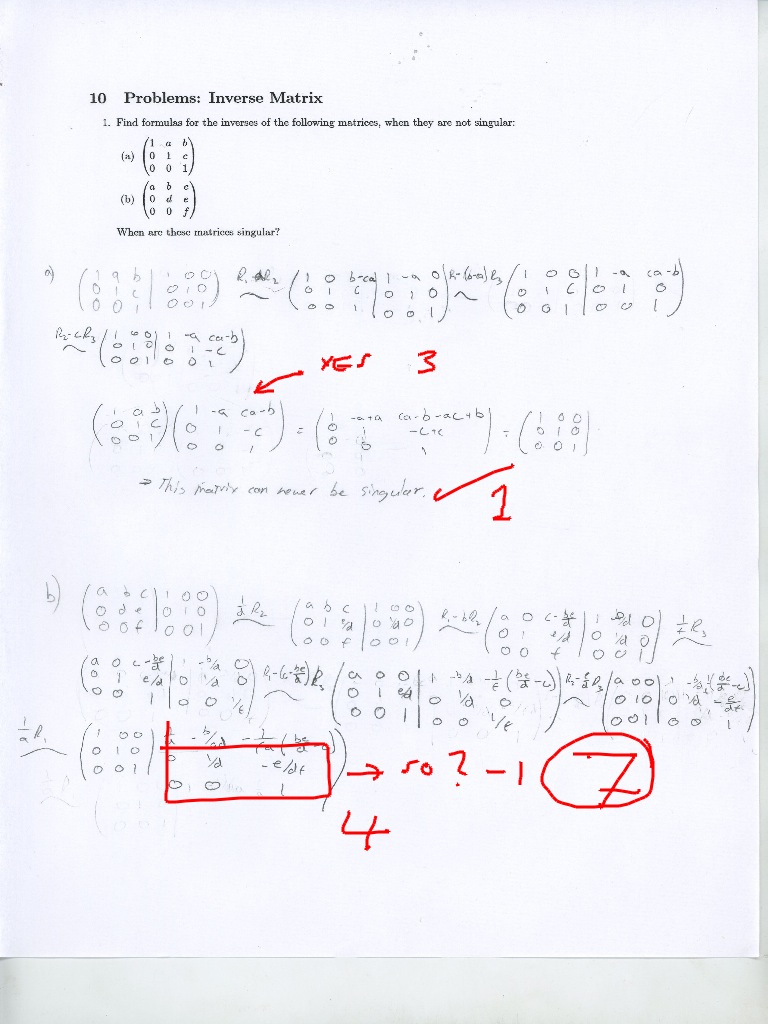 10 Problems: Inverse Matrix
1. Find formulas for the inverses of the following matrices, when they are not singular:
(a) (1 a b
0 1 c
0 0 1)
(b) (a b c
0 d e
0 0 f)
When are these matrices singular?
a) (1 a b | 1 0 0
0 1 c | 0 1 0
0 0 1 | 0 0 1)
(1 0 b-ca | 1 -a 0
0 1 c | 0 1 0
0 0 1 | 0 0 1)
(1 0 0 | 1 -a ca-b
0 1 c | 0 1 0
0 0 1 | 0 0 1)
R2-cR3 (1 0 0 | 1 -a ca-b
0 1 0 | 0 1 -c
0 0 1 | 0 0 1)
YES 3
(1 a b
0 1 c
0 0 1)
(1 -a ca-b
0 1 -c
0 0 1)
= (1 -a+a ca-b-ac+b
0 1 -c+c
0 0 1)
= (1 0 0
0 1 0
0 0 1)
⇒ This matrix can never be singular. 1
b) (a b c | 1 0 0
0 d e | 0 1 0
0 0 f | 0 0 1)
1/d R2
(a b c | 1 0 0
0 1 e/d | 0 1/d 0
0 0 f | 0 0 1)
R1-bR2
(a 0 c-be/d | 1 -b/d 0
0 1 e/d | 0 1/d 0
0 0 f | 0 0 1)
1/f R3
(a 0 c-be/d | 1 -b/d 0
0 1 e/d | 0 1/d 0
0 0 1 | 0 0 1/f)
R1-(c-be/d)R3
(a 0 0 | 1 -b/d 1/f(be/d-c)
0 1 e/d | 0 1/d 0
0 0 1 | 0 0 1/f)
R2-e/d R3
(a 0 0
0 1 0
0 0 1
1/a R1
(1 0 0
0 1 0
0 0 1
0 1/d -e/df
0 0 1
→ so? -1 7
4